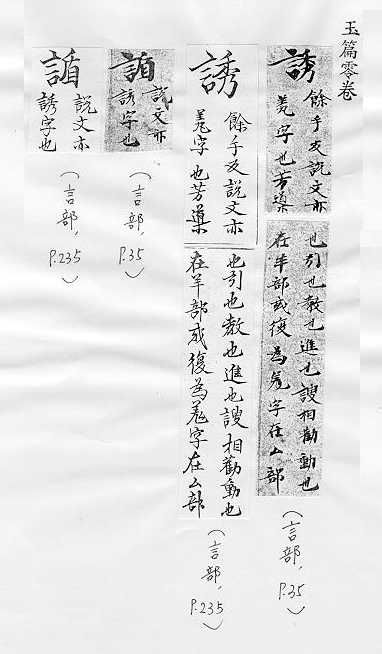 玉篇零卷
誘
餘手反說文亦
羑字也芳導
也引也教也進也謏相勸動也
在羊部或復為羑字在厶部
(言部, P.35)
誘
餘手反說文亦
羑字也芳導
也引也教也進也謏相勸動也
在羊部或復為羑字在厶部
(言部, P.235)
說文亦
誘字也
(言部, P.35)
說文亦
誘字也
(言部, P.235)